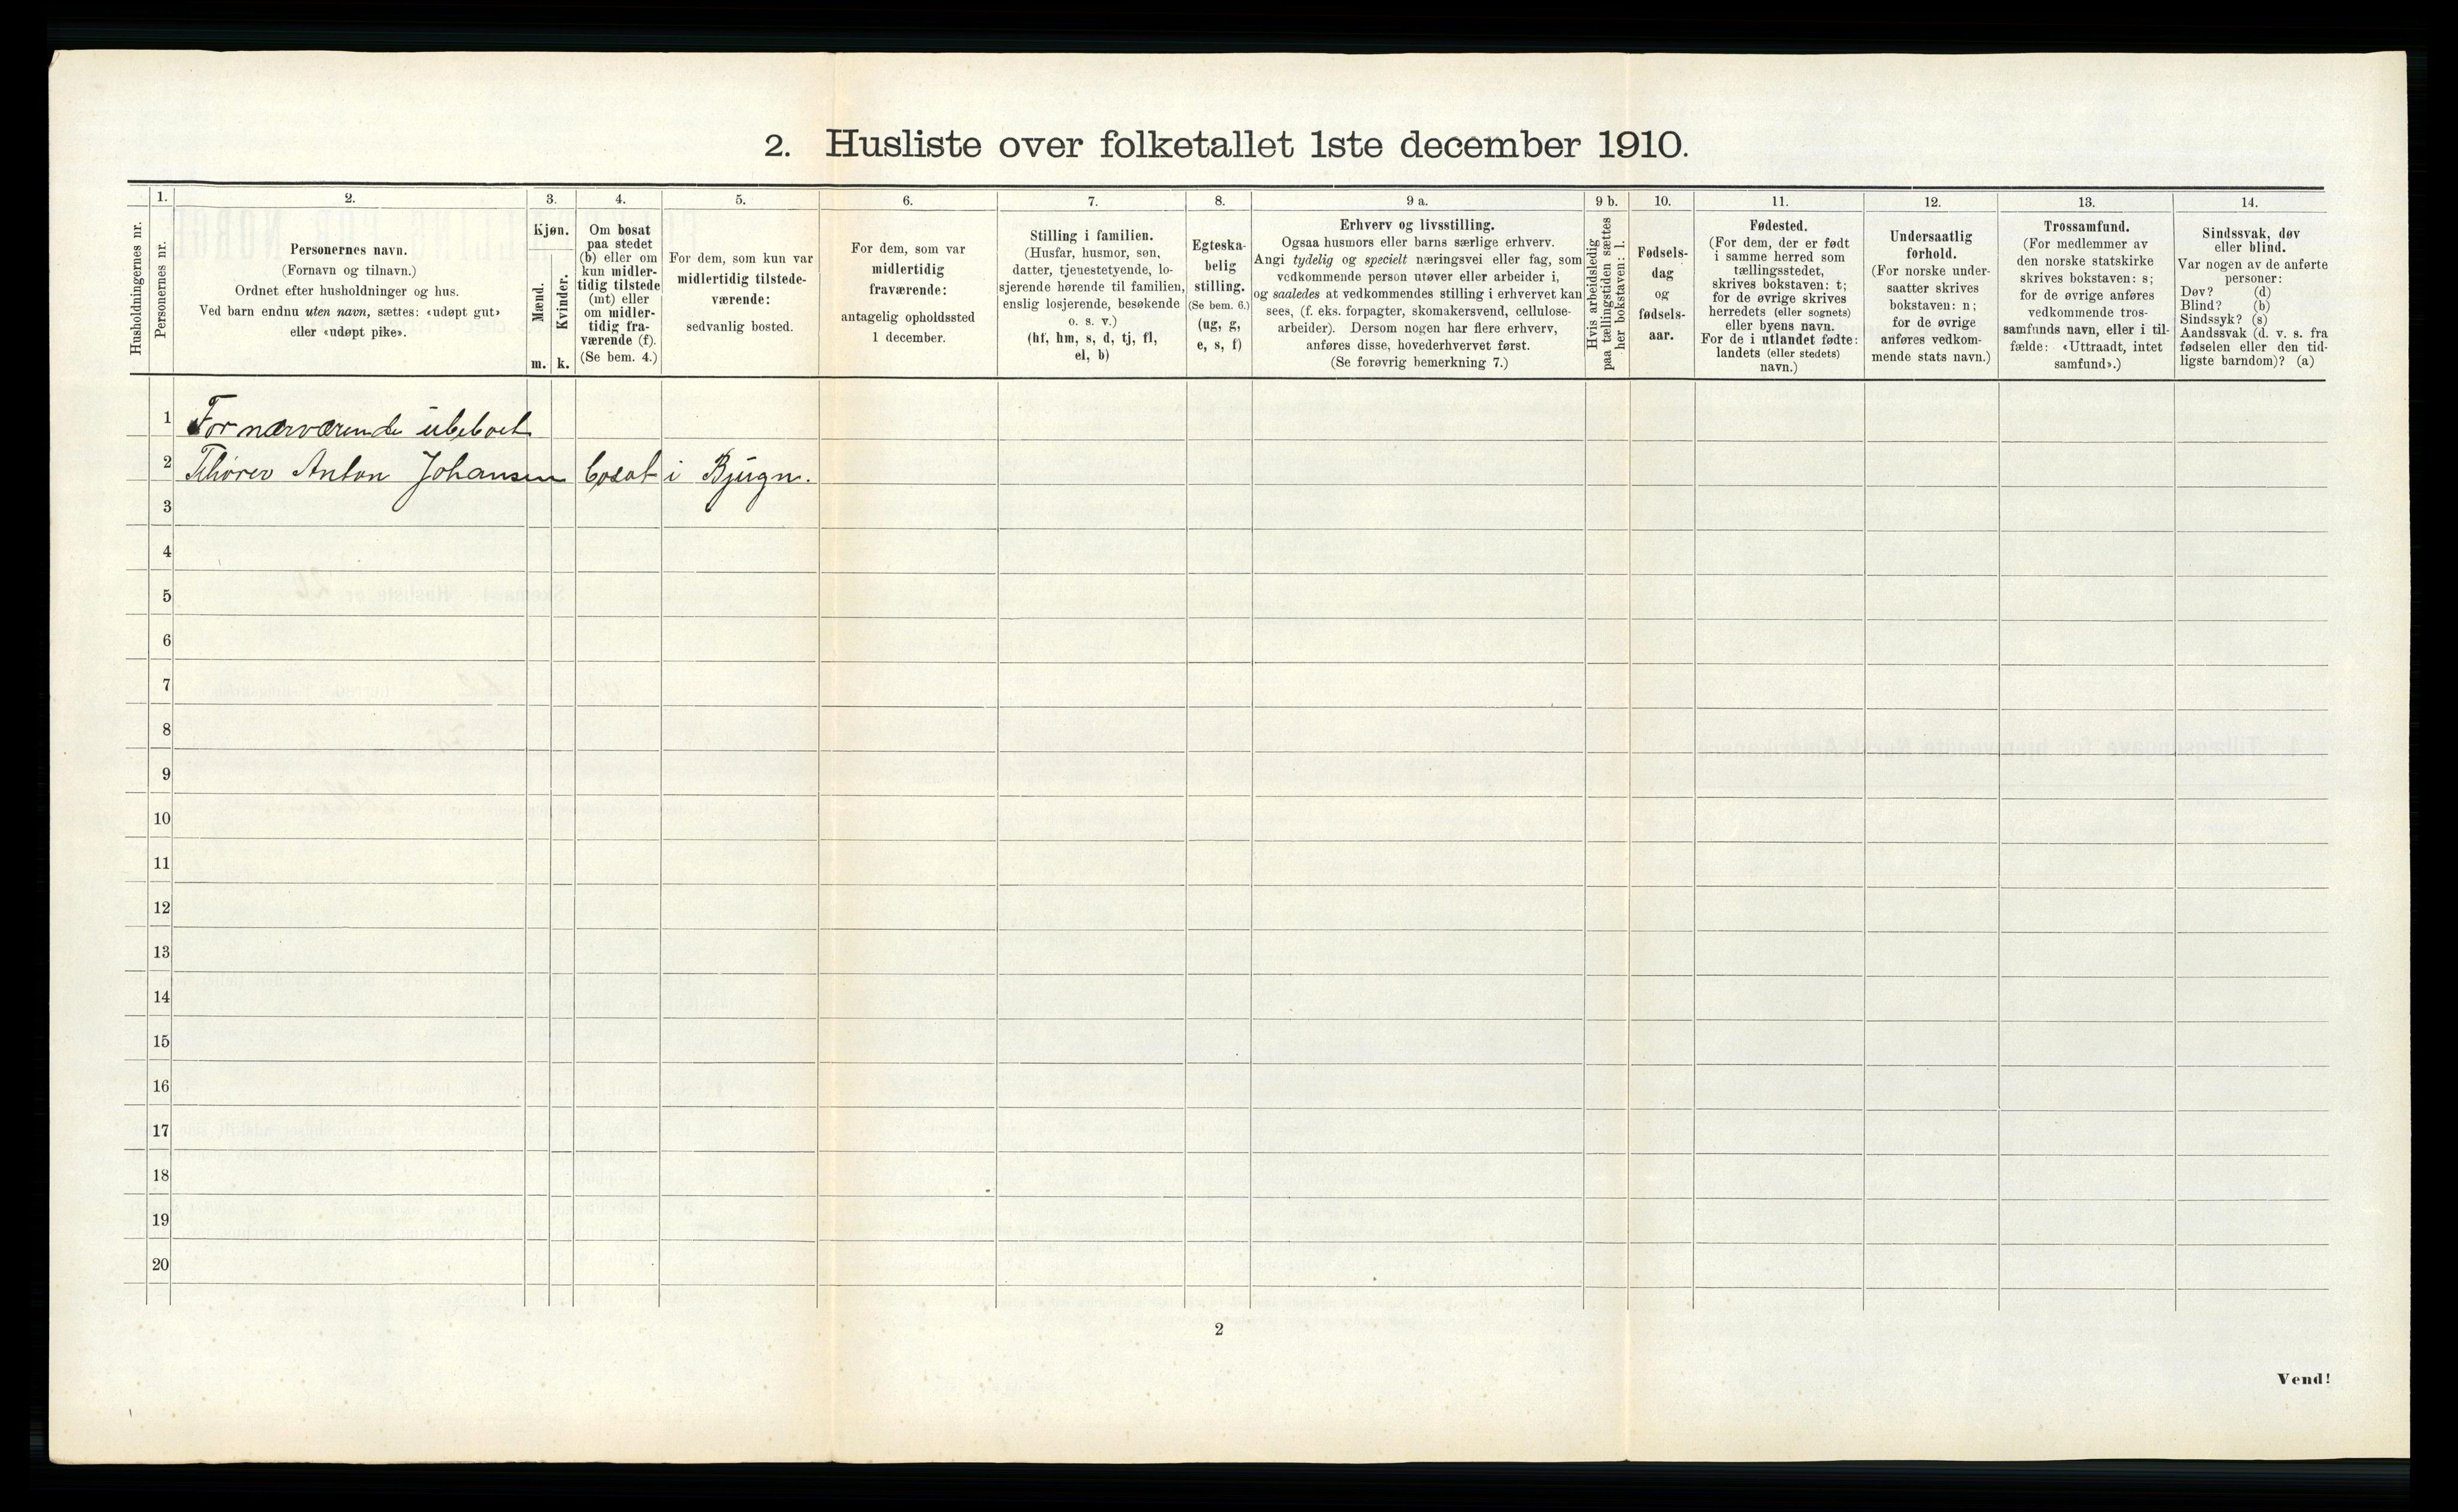 2. Husliste over folketallet 1ste december 1910.
Husholdningernes nr.
1.
Personernes nr.
2.
Personernes navn.
(Fornavn og tilnavn.)
Ordnet efter husholdninger og hus.
Ved barn endnu uten navn, sættes: «udøpt gut»
eller «udøpt pike».
3.
Kjøn.
Mænd.
Kvinder.
m. k.
4.
Om bosat
paa stedet
(b) eller om
kun midler-
tidig tilstede
(mt) eller
om midler-
tidig fra-
værende (f).
(Se bem. 4.)
5.
For dem, som kun var
midlertidig tilstede-
værende:
sedvanlig bosted.
6.
For dem, som var
midlertidig
fraværende:
antagelig opholdssted
1 december.
7.
Stilling i familien.
(Husfar, husmor, søn,
datter, tjenestetyende, lo-
sjerende hørende til familien,
enslig losjerende, besøkende
o. s. v.)
(hf, hm, s, d, tj, fl,
el, b)
8.
Egteska-
belig
stilling.
(Se bem. 6.)
(ug, g,
e, s, f)
9 a.
Erhverv og livsstilling.
Ogsaa husmors eller barns særlige erhverv.
Angi tydelig og specielt næringsvei eller fag, som
vedkommende person utøver eller arbeider i,
og saaledes at vedkommendes stilling i erhvervet kan
sees, (f. eks. forpagter, skomakersvend, cellulose-
arbeider). Dersom nogen har flere erhverv,
anføres disse, hovederhvervet først.
(Se forøvrig bemerkning 7.)
9 b.
Hvis arbeidsledig
paa tællingstiden sættes
her bokstaven: l.
10.
Fødsels-
dag
og
fødsels-
aar.
11.
Fødested.
(For dem, der er født
i samme herred som
tællingsstedet,
skrives bokstaven: t;
for de øvrige skrives
herredets (eller sognets)
eller byens navn.
For de i utlandet fødte:
landets (eller stedets)
navn.)
12.
Undersaatlig
forhold.
(For norske under-
saatter skrives
bokstaven: n;
for de øvrige
anføres vedkom-
mende stats navn.)
13.
Trossamfund.
(For medlemmer av
den norske statskirke
skrives bokstaven: s;
for de øvrige anføres
vedkommende tros-
samfunds navn, eller i til-
fælde: «Uttraadt, intet
samfund».)
14.
Sindssvak, døv
eller blind.
Var nogen av de anførte
personer:
Døv? (d)
Blind? (b)
Sindssyk? (s)
Aandssvak (d. v. s. fra
fødselen eller den tid-
ligste barndom)? (a)
1 For nærværende ubeboet
2 Anton Johansen bosat i Bjugn.
3
4
5
6
7
8
9
10
11
12
13
14
15
16
17
18
19
20
2
Vend!